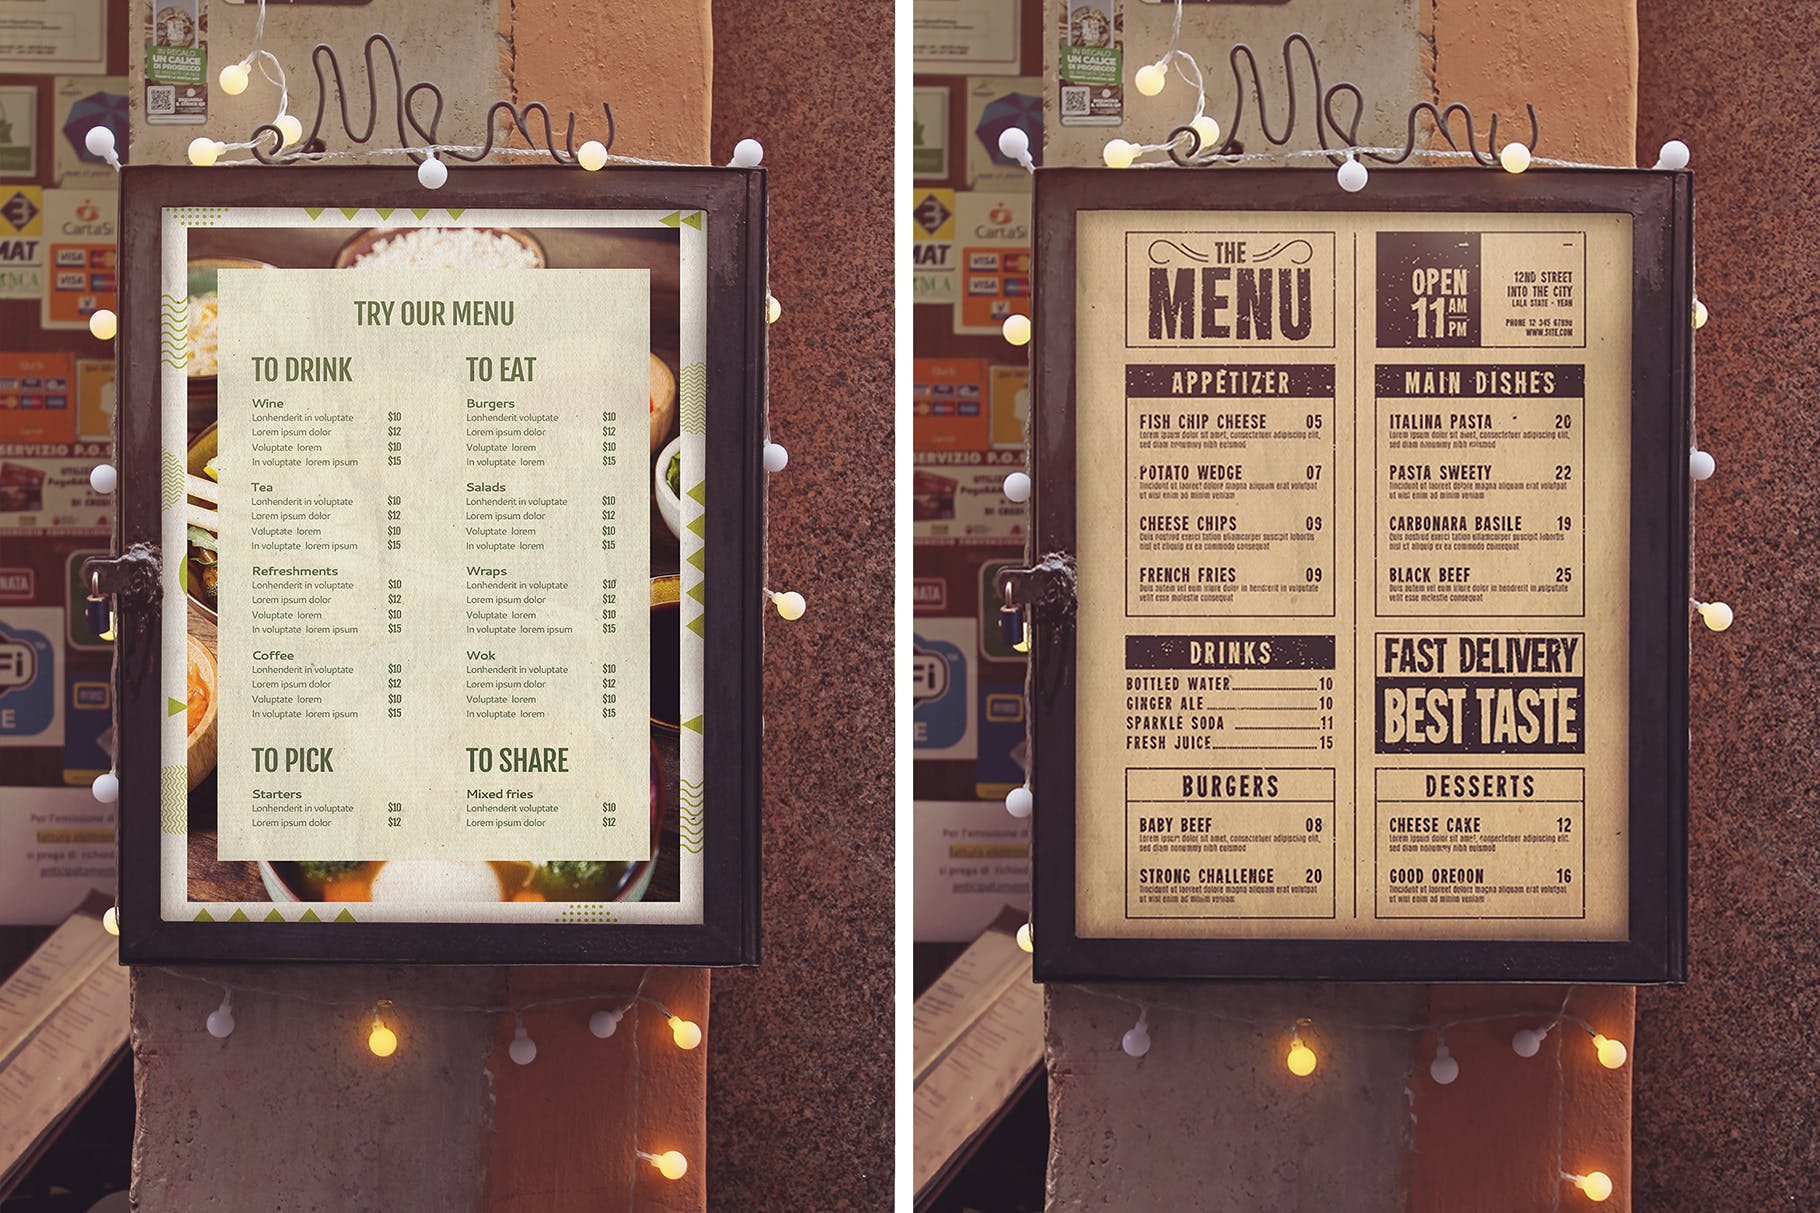 IN REGALO
UN CALICE
DI PROSECCO
Menu
CartaSi
VISA
VISA
MAT
SERVIZIO P.O.S
NATA
Fi
E
Per l'emissione di
fattura elettronica
si prega di richied
anticipatamente
TRY OUR MENU
TO DRINK
Wine
Lonhenderit in voluptate $10
Lorem ipsum dolor $12
Voluptate lorem $10
In voluptate lorem ipsum $15
Tea
Lonhenderit in voluptate $10
Lorem ipsum dolor $12
Voluptate lorem $10
In voluptate lorem ipsum $15
Refreshments
Lonhenderit in voluptate $10
Lorem ipsum dolor $12
Voluptate lorem $10
In voluptate lorem ipsum $15
Coffee
Lonhenderit in voluptate $10
Lorem ipsum dolor $12
Voluptate lorem $10
In voluptate lorem ipsum $15
TO PICK
Starters
Lonhenderit in voluptate $10
Lorem ipsum dolor $12
TO EAT
Burgers
Lonhenderit voluptate $10
Lorem ipsum dolor $12
Voluptate lorem $10
In voluptate lorem $15
Salads
Lonhenderit in voluptate $10
Lorem ipsum dolor $12
Voluptate lorem $10
In voluptate lorem $15
Wraps
Lonhenderit in voluptate $10
Lorem ipsum dolor $12
Voluptate lorem $10
In voluptate lorem ipsum $15
Wok
Lonhenderit in voluptate $10
Lorem ipsum dolor $12
Voluptate lorem $10
In voluptate lorem $15
TO SHARE
Mixed fries
Lonhenderit voluptate $10
Lorem ipsum dolor $12
IN REGALO
UN CALICE
DI PROSECCO
Menu
CartaSi
VISA
VISA
MAT
SERVIZIO P.O.S
NATA
Fi
E
Per l'emissione di
fattura elettronica
si prega di richied
anticipatamente
THE
MENU
OPEN
11 AM
PM
12ND STREET
INTO THE CITY
LALA STATE - YEAH
PHONE 12 345 67890
WWW.SITE.COM
APPETIZER
FISH CHIP CHEESE 05
Lorem ipsum dolor sit amet, consectetuer adipiscing elit,
sed diam nonummy nibh euismod
POTATO WEDGE 07
Tincidunt ut laoreet dolore magna aliquam erat volutpat
ut wisi enim ad minim veniam
CHEESE CHIPS 09
Quis nostrud exerci tation ullamcorper suscipit lobortis
nisl ut aliquip ex ea commodo consequat
FRENCH FRIES 09
Duis autem vel eum iriure dolor in hendrerit in vulputate
velit esse molestie consequat
DRINKS
BOTTLED WATER 10
GINGER ALE 10
SPARKLE SODA 11
FRESH JUICE 15
BURGERS
BABY BEEF 08
Lorem ipsum dolor sit amet, consectetuer adipiscing elit,
sed diam nonummy nibh euismod
STRONG CHALLENGE 20
Tincidunt ut laoreet dolore magna aliquam erat volutpat
ut wisi enim ad minim veniam
MAIN DISHES
ITALINA PASTA 20
Lorem ipsum dolor sit amet, consectetuer adipiscing elit,
sed diam nonummy nibh euismod
PASTA SWEETY 22
Tincidunt ut laoreet dolore magna aliquam erat volutpat
ut wisi enim ad minim veniam
CARBONARA BASILE 19
Quis nostrud exerci tation ullamcorper suscipit lobortis
nisl ut aliquip ex ea commodo consequat
BLACK BEEF 25
Duis autem vel eum iriure dolor in hendrerit in vulputate
velit esse molestie consequat
FAST DELIVERY
BEST TASTE
DESSERTS
CHEESE CAKE 12
Lorem ipsum dolor sit amet, consectetuer adipiscing elit,
sed diam nonummy nibh euismod
GOOD OREOON 16
Tincidunt ut laoreet dolore magna aliquam erat volutpat
ut wisi enim ad minim veniam